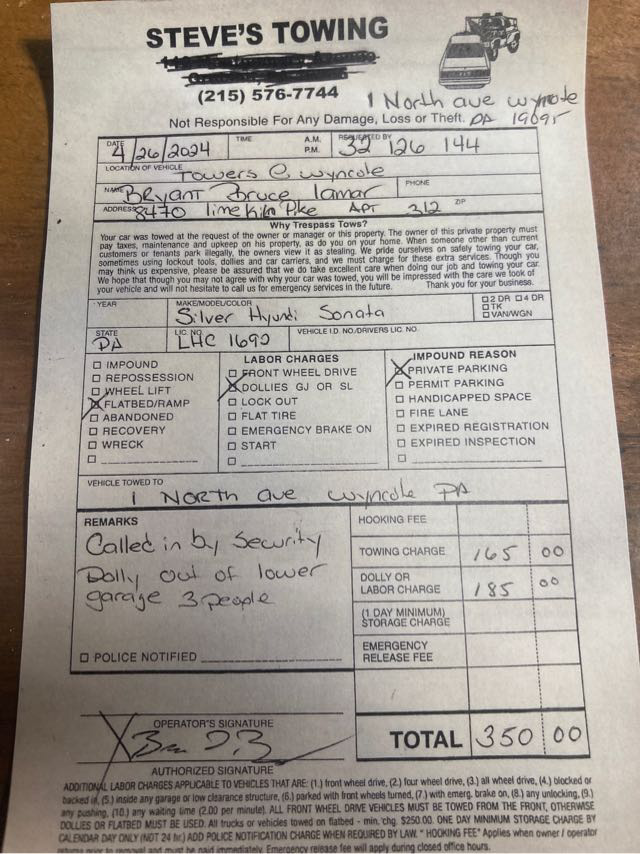 STEVE'S TOWING
(215) 576-7744
1 North ave wyncote
PA 19095
Not Responsible For Any Damage, Loss or Theft.
DATE 4/26/2024 TIME A.M. P.M. REQUESTED BY 32 126 144
LOCATION OF VEHICLE Towers @ wyncote
NAME Bryant Bruce lamar PHONE
ADDRESS 8470 limekiln Pike APT 312 ZIP
Why Trespass Tows?
Your car was towed at the request of the owner or manager or this property. The owner of this private property must
pay taxes, maintenance and upkeep on his property, as do you on your home. When someone other than current
customers or tenants park illegally, the owners view it as stealing. We pride ourselves on safely towing your car,
sometimes using lockout tools, dollies and car carriers, and we must charge for these extra services. Though you
may think us expensive, please be assured that we do take excellent care when doing our job and towing your car.
We hope that though you may not agree with why your car was towed, you will be impressed with the care we took of
your vehicle and will not hesitate to call us for emergency services in the future. Thank you for your business.
YEAR MAKE/MODEL/COLOR Silver Hyundi Sonata 2 DR 4 DR
TK
VAN/WGN
STATE PA LIC. NO. LHC 1692 VEHICLE I.D. NO./DRIVERS LIC. NO.
IMPOUND
REPOSSESSION
WHEEL LIFT
FLATBED/RAMP
ABANDONED
RECOVERY
WRECK
LABOR CHARGES
FRONT WHEEL DRIVE
DOLLIES GJ OR SL
LOCK OUT
FLAT TIRE
EMERGENCY BRAKE ON
START
IMPOUND REASON
PRIVATE PARKING
PERMIT PARKING
HANDICAPPED SPACE
FIRE LANE
EXPIRED REGISTRATION
EXPIRED INSPECTION
VEHICLE TOWED TO
1 North ave wyncote PA
REMARKS
Called in by Security
Dolly out of lower
garage 3 people
POLICE NOTIFIED
HOOKING FEE
TOWING CHARGE 165 00
DOLLY OR LABOR CHARGE 185 00
(1 DAY MINIMUM) STORAGE CHARGE
EMERGENCY RELEASE FEE
TOTAL 350 00
OPERATOR'S SIGNATURE
X
AUTHORIZED SIGNATURE
ADDITIONAL LABOR CHARGES APPLICABLE TO VEHICLES THAT ARE: (1.) front wheel drive, (2.) four wheel drive, (3.) all wheel drive, (4.) blocked or
backed in, (5.) inside any garage or low clearance structure, (6.) parked with front wheels turned, (7.) with emerg. brake on, (8.) any unlocking, (9.)
any pushing, (10.) any waiting time (2.00 per minute). ALL FRONT WHEEL DRIVE VEHICLES MUST BE TOWED FROM THE FRONT, OTHERWISE
DOLLIES OR FLATBED MUST BE USED. All trucks or vehicles towed on flatbed - min. chg. $250.00. ONE DAY MINIMUM STORAGE CHARGE BY
CALENDAR DAY ONLY (NOT 24 hr.) ADD POLICE NOTIFICATION CHARGE WHEN REQUIRED BY LAW. "HOOKING FEE" Applies when owner / operator
returns prior to removal and must be paid immediately. Emergency release fee will apply during closed office hours.